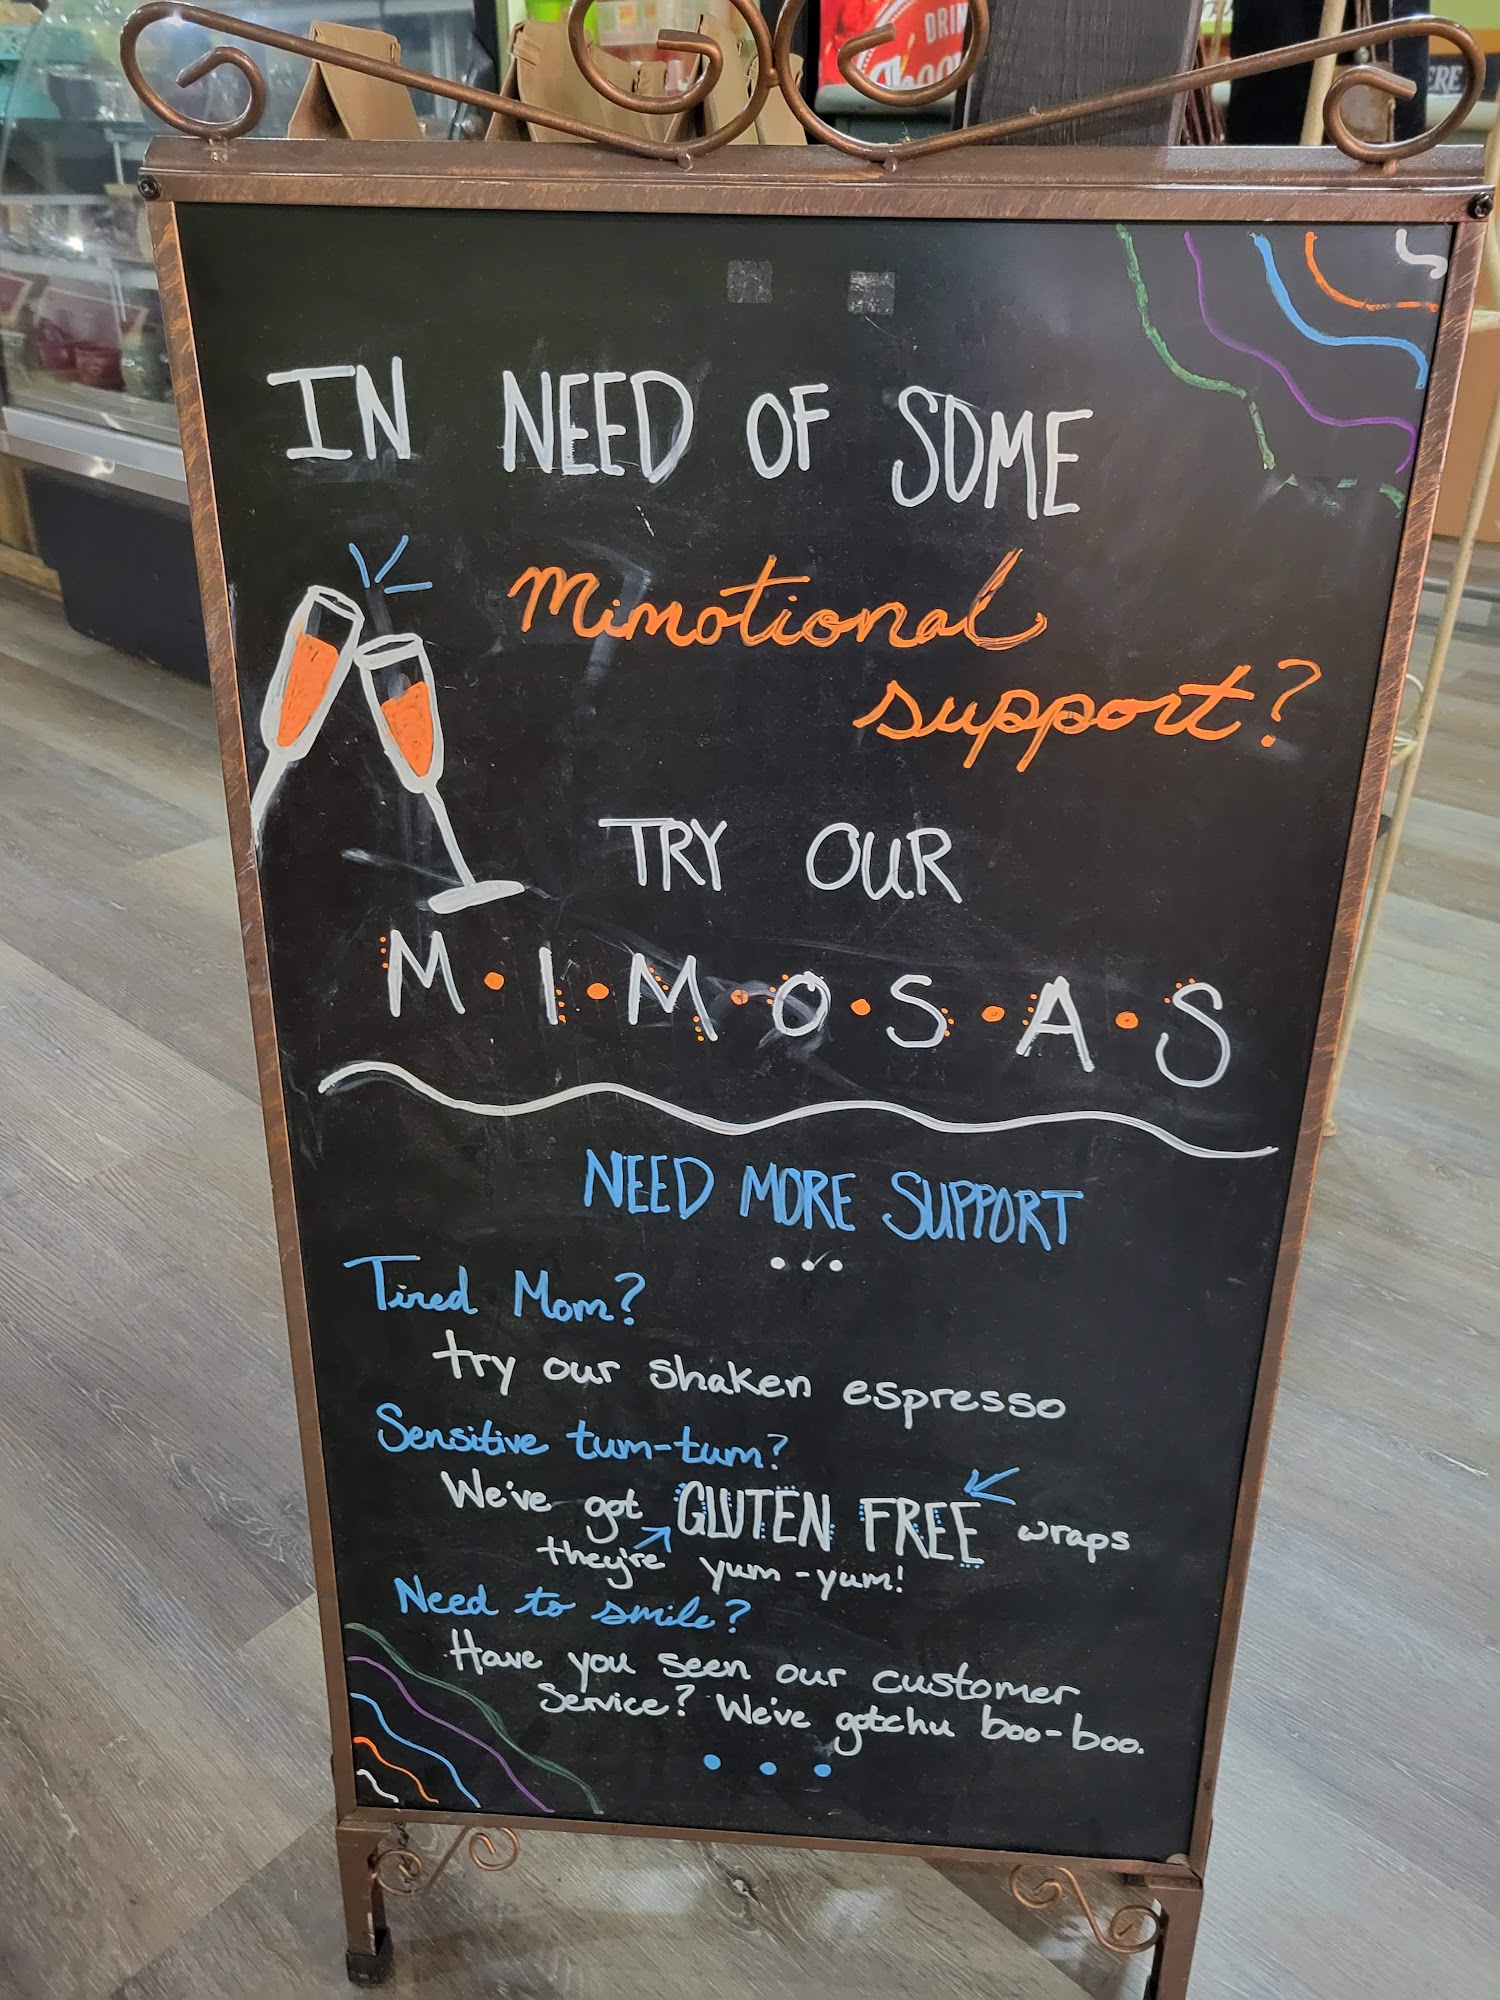 DRIN
IN NEED OF SOME
Mimotional
support?
TRY OUR
M•I•M•O•S•A•S
NEED MORE SUPPORT
...
Tired Mom?
try our shaken espresso
Sensitive tum-tum?
We've got GLUTEN FREE wraps
they're yum-yum!
Need to smile?
Have you seen our customer
service? We've gotchu boo-boo.
...